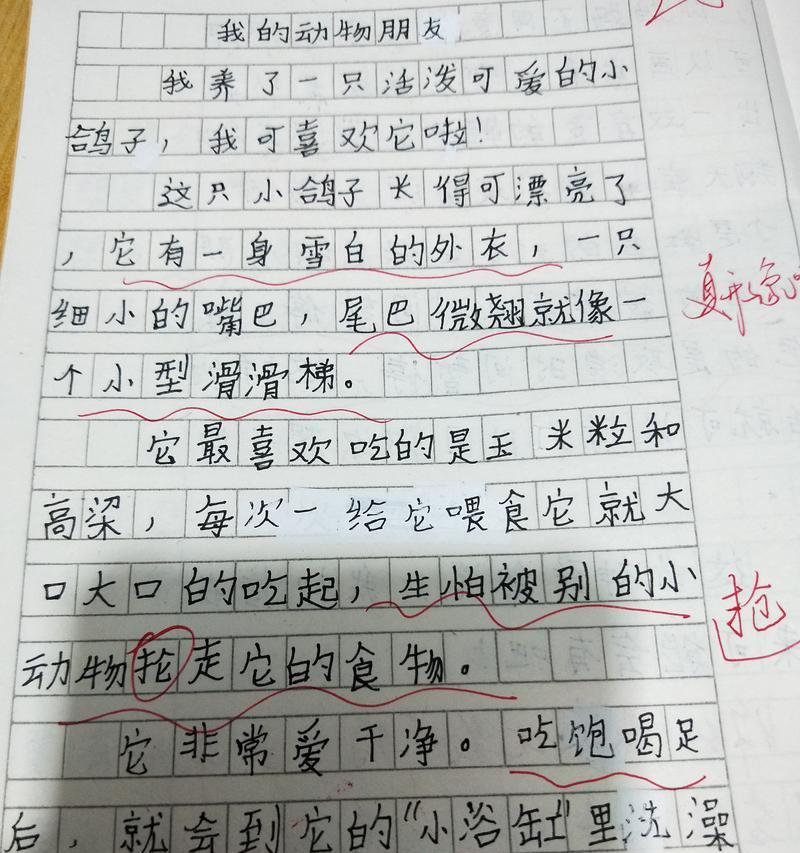 我的动物朋友
我养了一只活泼可爱的小
鸽子，我可喜欢它啦！
这只小鸽子长得可漂亮了
，它有一身雪白的外衣，一只
细小的嘴巴，尾巴微翘就像一
真形象
个小型滑滑梯。
它最喜欢吃的是玉米粒和
高梁，每次一给它喂食它就大
口大口的吃起，生怕被别的小
抢
动物抡走它的食物。
它非常爱干净。吃饱喝足
后，就会到它的“小浴缸”里洗澡